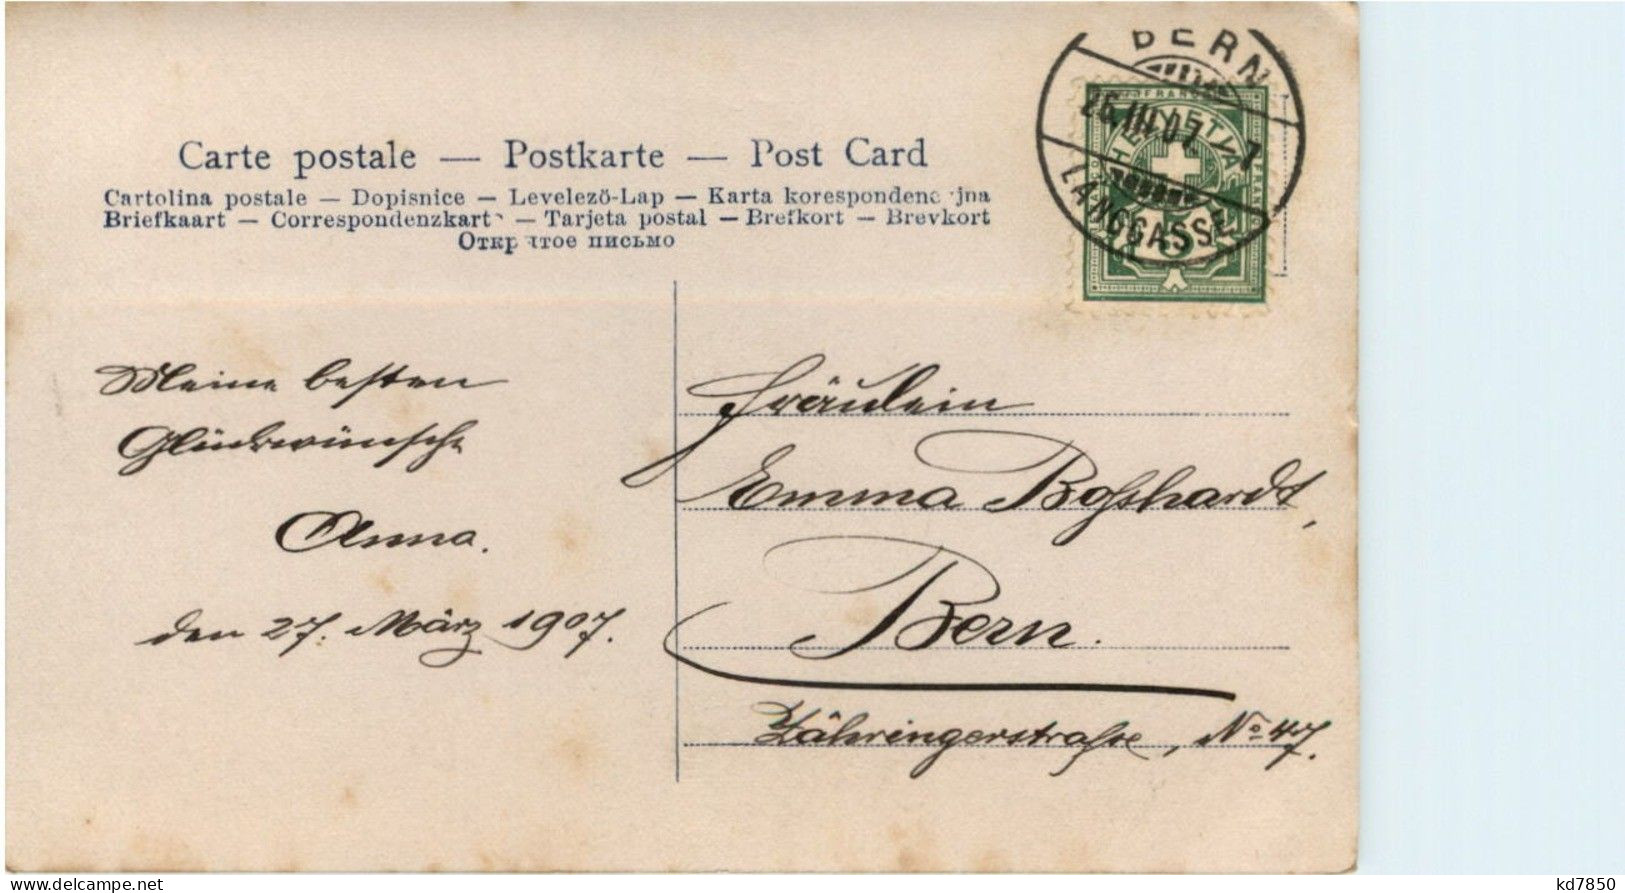 Carte postale — Postkarte — Post Card
Cartolina postale — Dopisnice — Levelező-Lap — Karta korespondenc jna
Briefkaart — Correspondenzkart — Tarjeta postal — Brefkort — Brevkort
Откр тое письмо
BERN
26.III.07.-7
LÄNGGASSE
FRANCO
HELVETIA
5
Meine besten
Glückwünsche
Anna.
den 27. März 1907.
Fräulein
Emma Boßhardt,
Bern.
Zähringerstraße, No 47.
kd7850